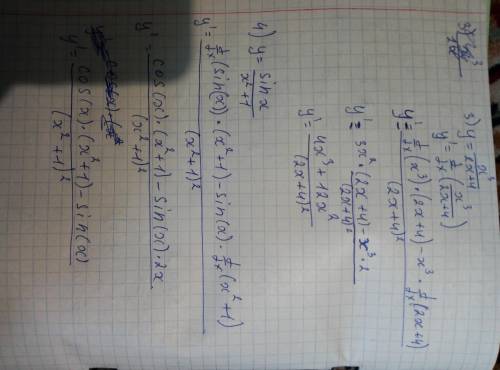 3) y = x³/(2x+4)
y' = d/dx (x³/(2x+4))
y' = (d/dx (x³)·(2x+4) - x³ · d/dx (2x+4))/(2x+4)²
y' = (3x²·(2x+4) - x³·2)/(2x+4)²
y' = (4x³+12x²)/(2x+4)²
4) y = sin x/(x²+1)
y' = (d/dx (sin(x))·(x²+1) - sin(x) · d/dx (x²+1))/(x²+1)²
y' = (cos(x)·(x²+1) - sin(x)·2x)/(x²+1)²
y' = (cos(x)·(x²+1) - sin(x))/(x²+1)²